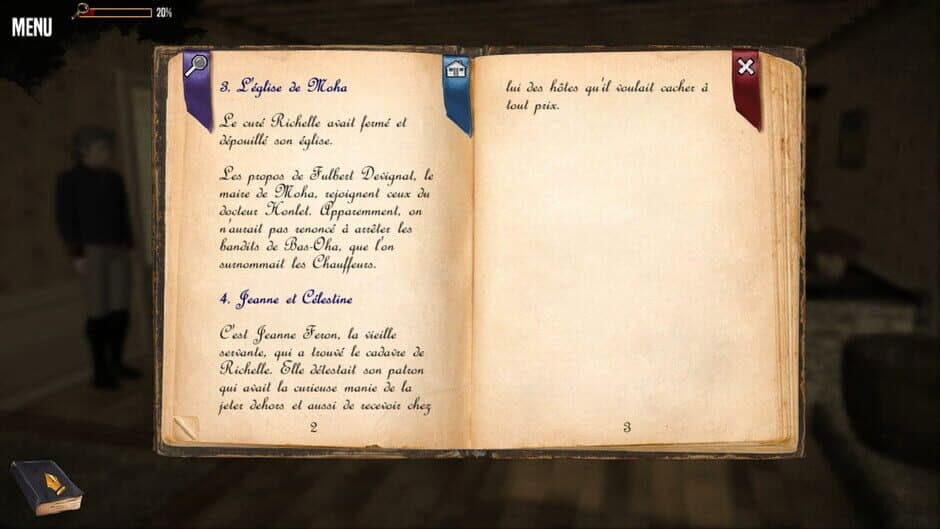 MENU
20%
3. L'église de Moha
Le curé Richelle avait fermé et
dépouillé son église.
Les propos de Fulbert Devignat, le
maire de Moha, rejoignent ceux du
docteur Honlet. Apparemment, on
n'aurait pas renoncé à arrêter les
bandits de Bas-Oha, que l'on
surnommait les Chauffeurs.
4. Jeanne et Célestine
C'est Jeanne Feron, la vieille
servante, qui a trouvé le cadavre de
Richelle. Elle détestait son patron
qui avait la curieuse manie de la
jeter dehors et aussi de recevoir chez
2
lui des hôtes qu'il voulait cacher à
tout prix.
3